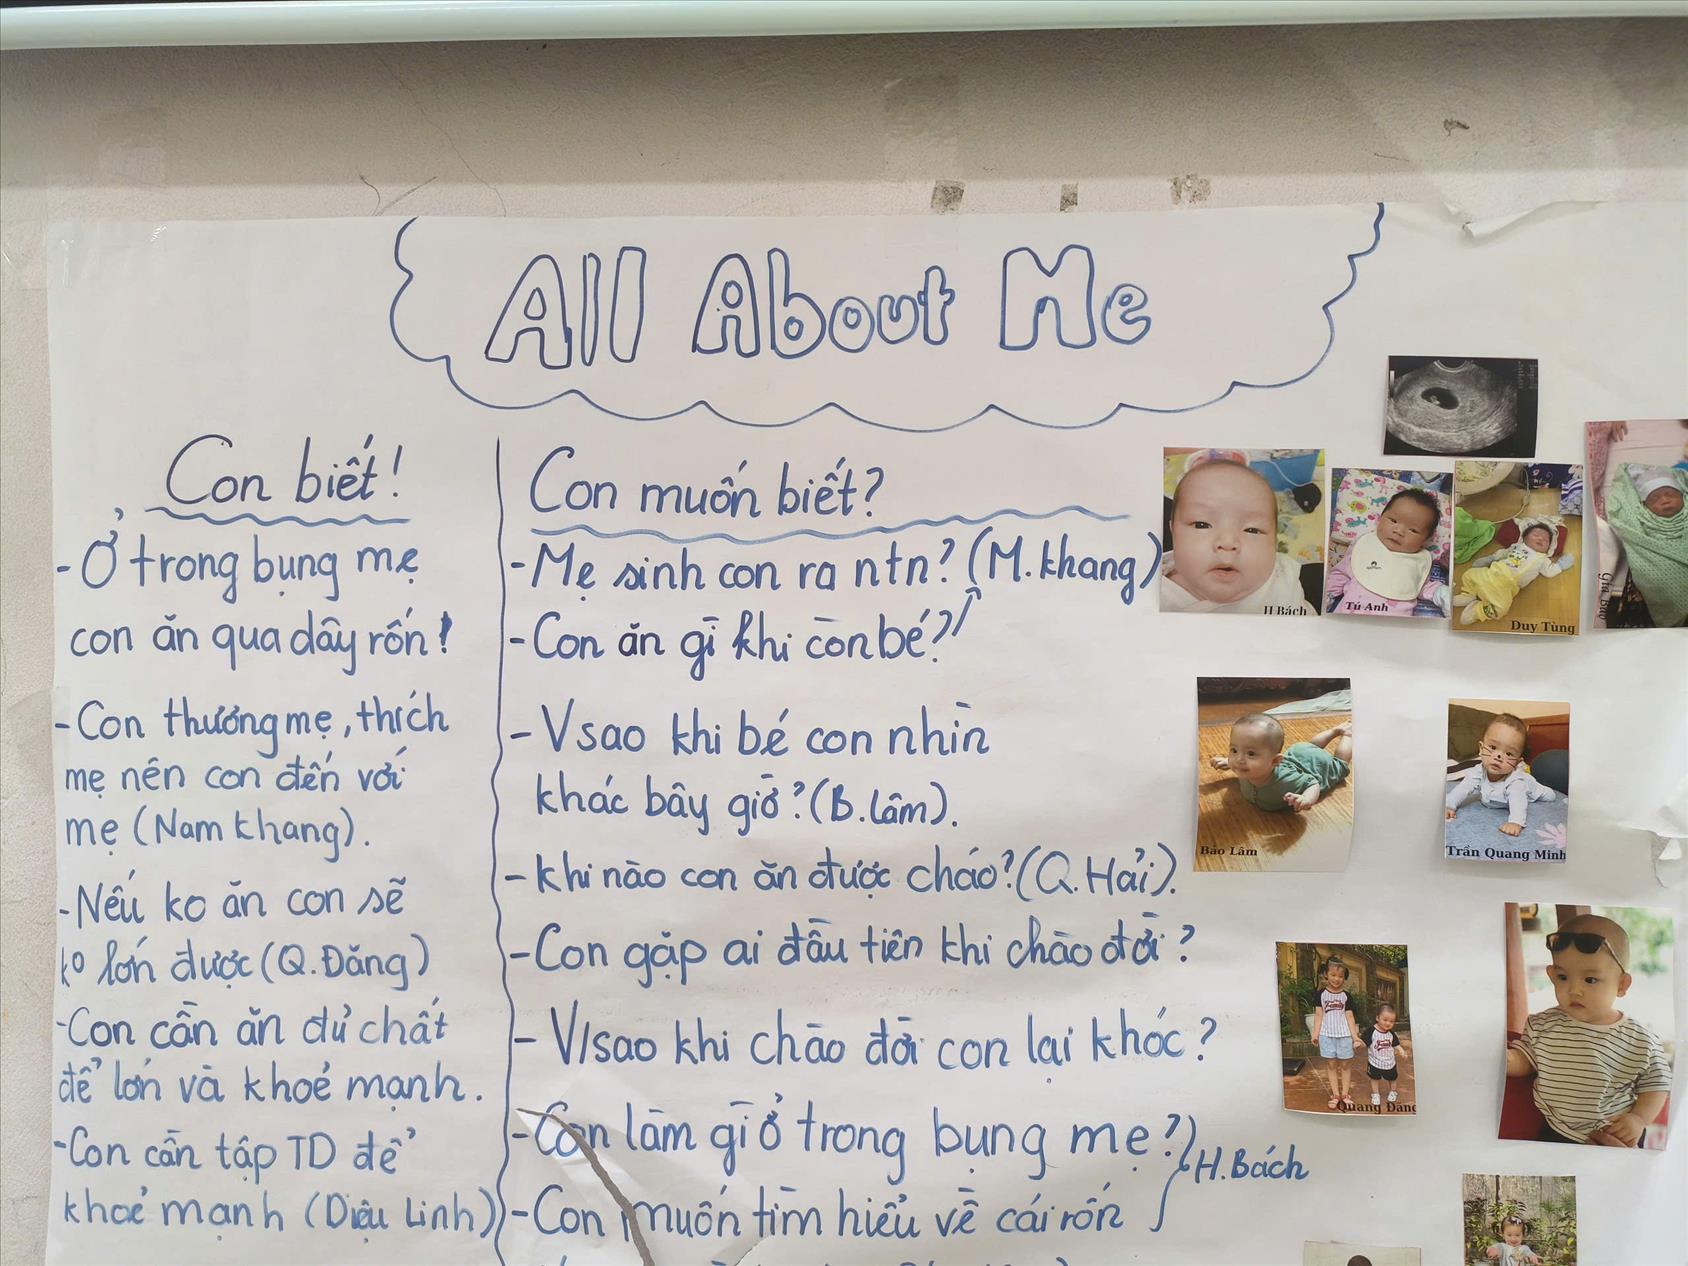 All About Me
Con biết!
- Ở trong bụng mẹ
con ăn qua dây rốn!
- Con thương mẹ, thích
mẹ nên con đến với
mẹ (Nam Khang).
- Nếu ko ăn con sẽ
ko lớn được (Q. Đăng)
- Con cần ăn đủ chất
để lớn và khoẻ mạnh.
- Con cần tập TD để
khoẻ mạnh (Diệu Linh)
Con muốn biết?
- Mẹ sinh con ra ntn? (M. Khang)
- Con ăn gì khi còn bé?
- Vsao khi bé con nhìn
khác bây giờ? (B. Lâm).
- Khi nào con ăn được cháo? (Q. Hải).
- Con gặp ai đầu tiên khi chào đời?
- V/sao khi chào đời con lại khóc?
- Con làm gì ở trong bụng mẹ?
H. Bách
- Con muốn tìm hiểu về cái rốn
H Bách
Tú Anh
Duy Tùng
Bảo Lâm
Trần Quang Minh
Quang Đăng